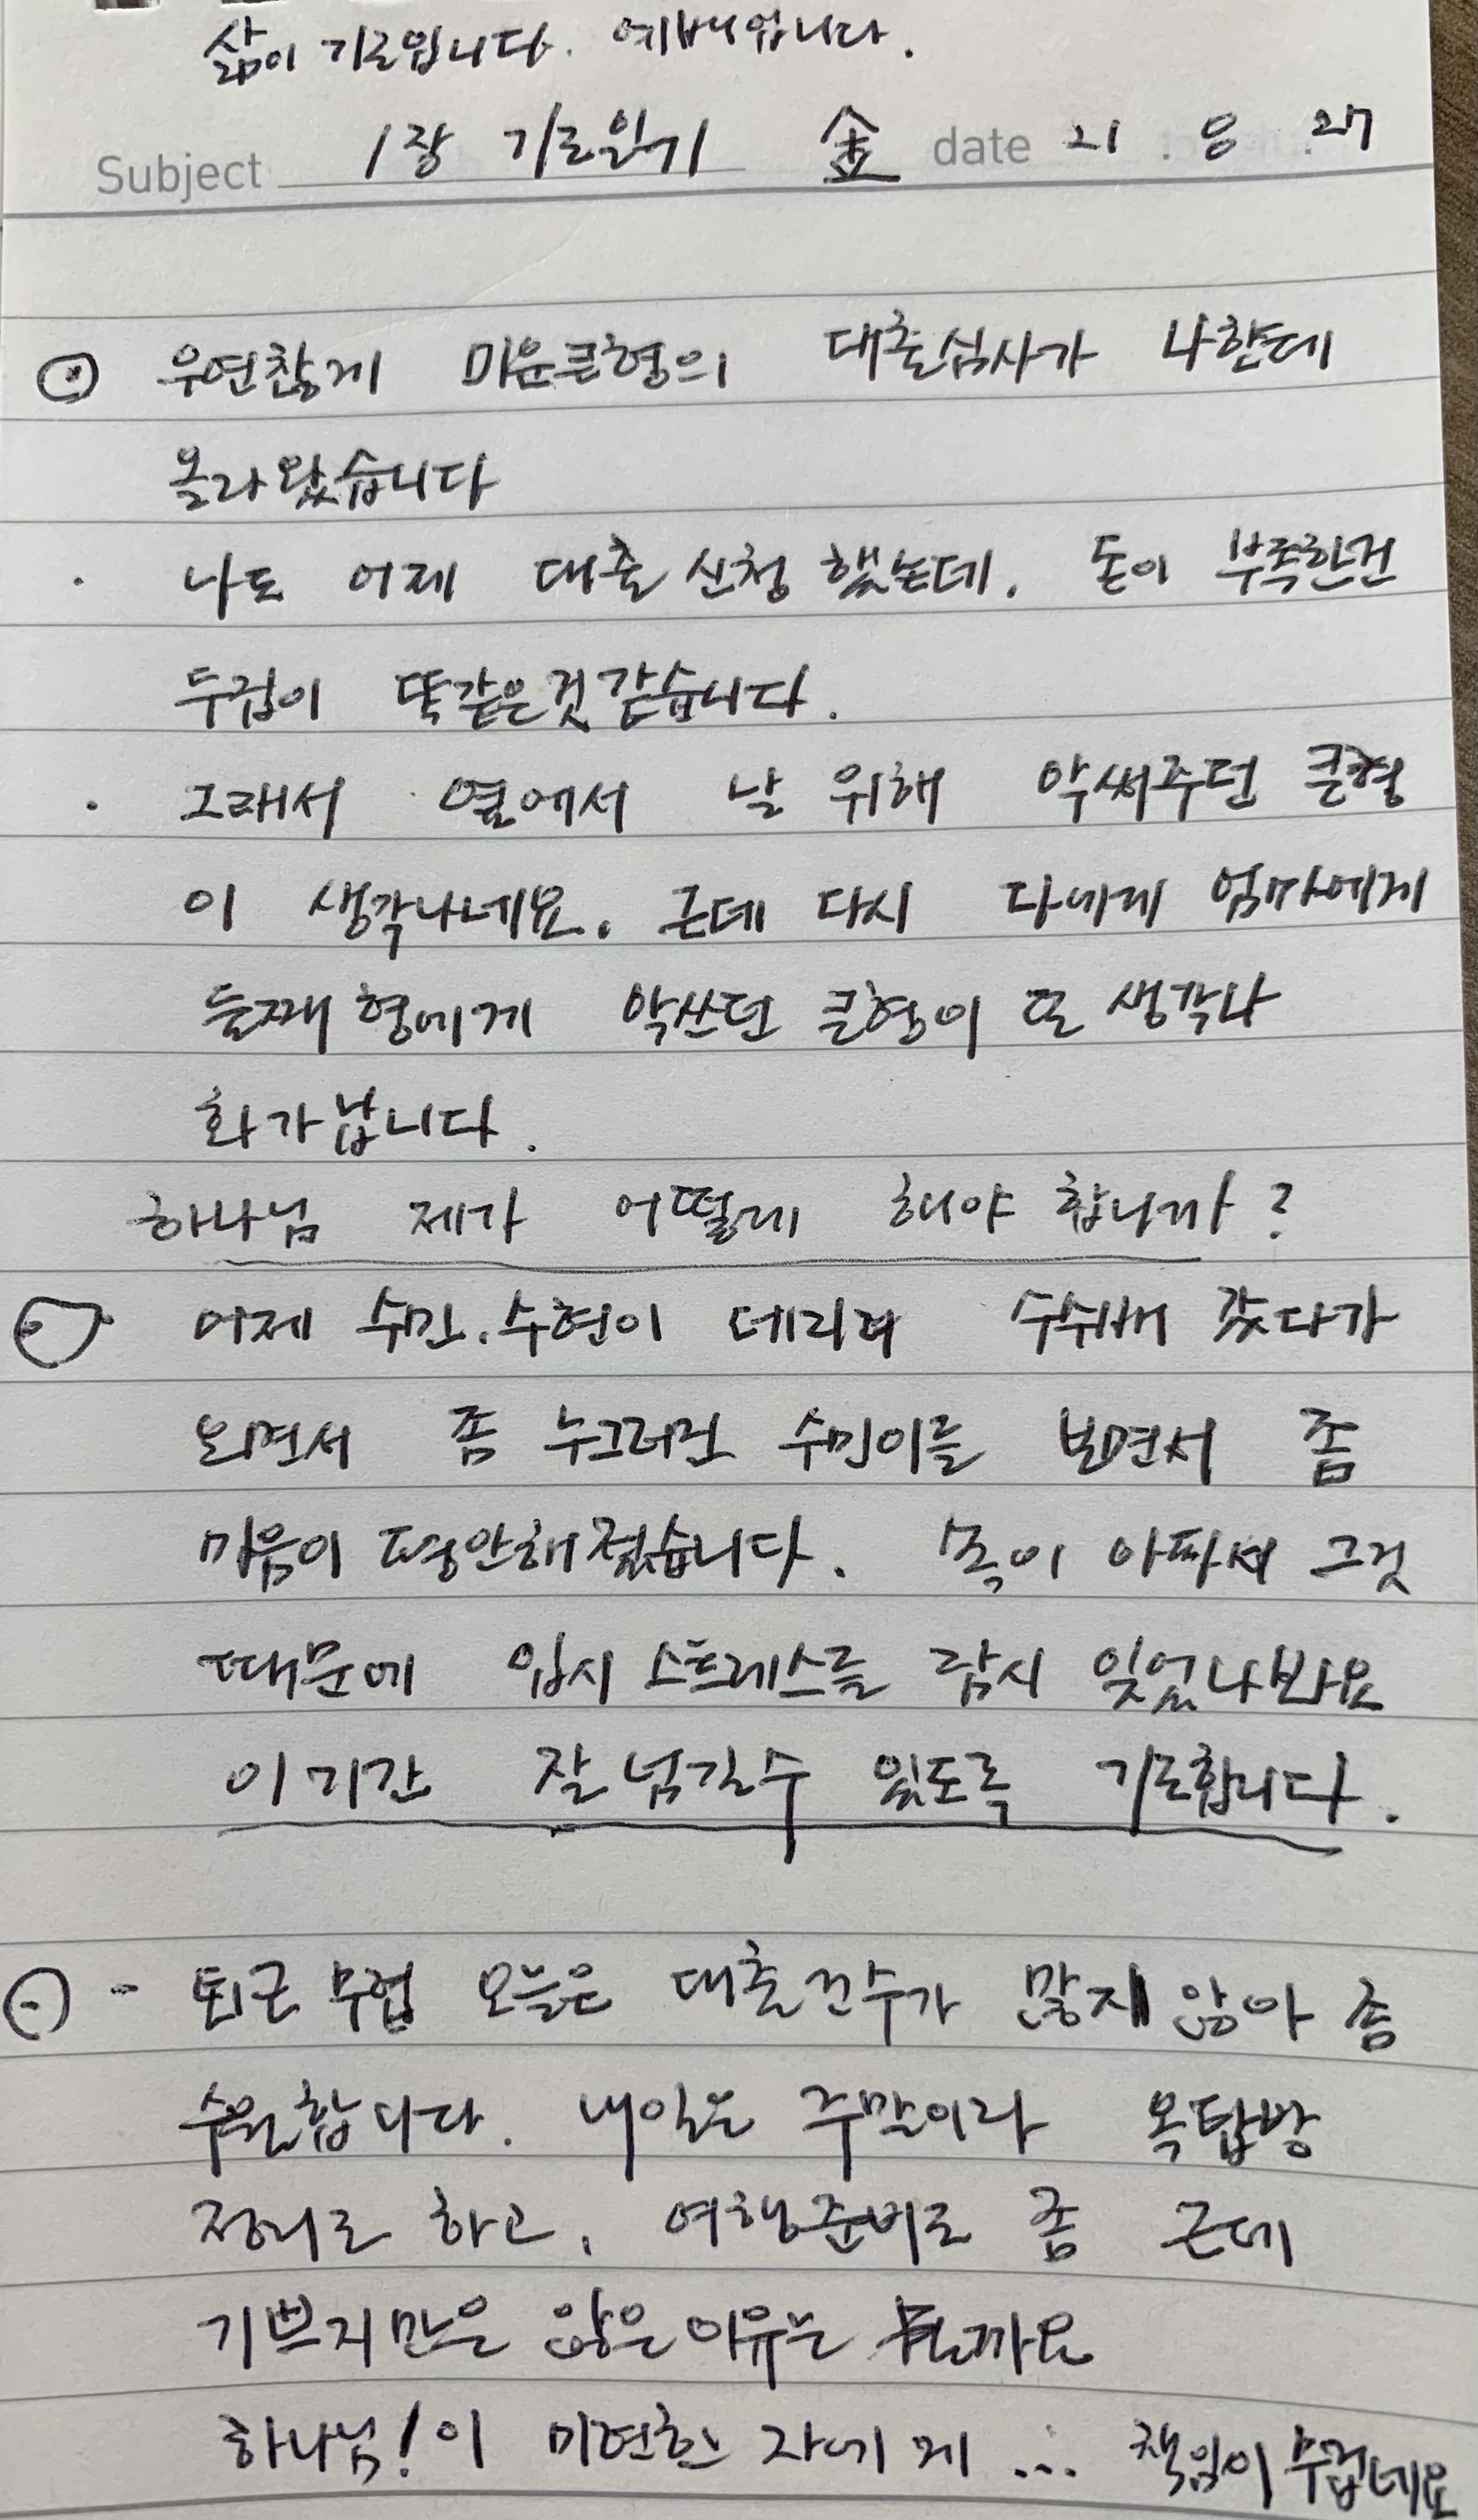 삶이 기도입니다. 예배입니다.
Subject 1장 기도일기 金 date 21 . 8 . 27
우연찮게 미운큰형의 대출심사가 나한테
올라왔습니다
· 나도 어제 대출신청했는데. 돈이 부족한건
두집이 똑같은것같습니다.
· 그래서 옆에서 날 위해 악써주던 큰형
이 생각나네요. 근데 다시 엄마에게
둘째형에게 악쓰던 큰형이 또 생각나
화가납니다.
하나님 제가 어떻게 해야 합니까?
어제 수민.수현이 데리러 갔다가
오면서 좀 누그러진 수민이를 보면서 좀
마음이 평안해졌습니다. 목이 아파서 그것
때문에 입시 스트레스를 잠시 잊었나봐요
이기간 잘넘길수 있도록 기도합니다.
- 퇴근무렵 오늘은 대출건수가 많지않아 좀
수월합니다. 내일은 주말이라 옥탑방
정리도 하고, 여행준비도 좀 근데
기쁘지만은 않은이유는 뭘까요
하나님! 이 미련한 자에게 ... 책임이 무겁네요